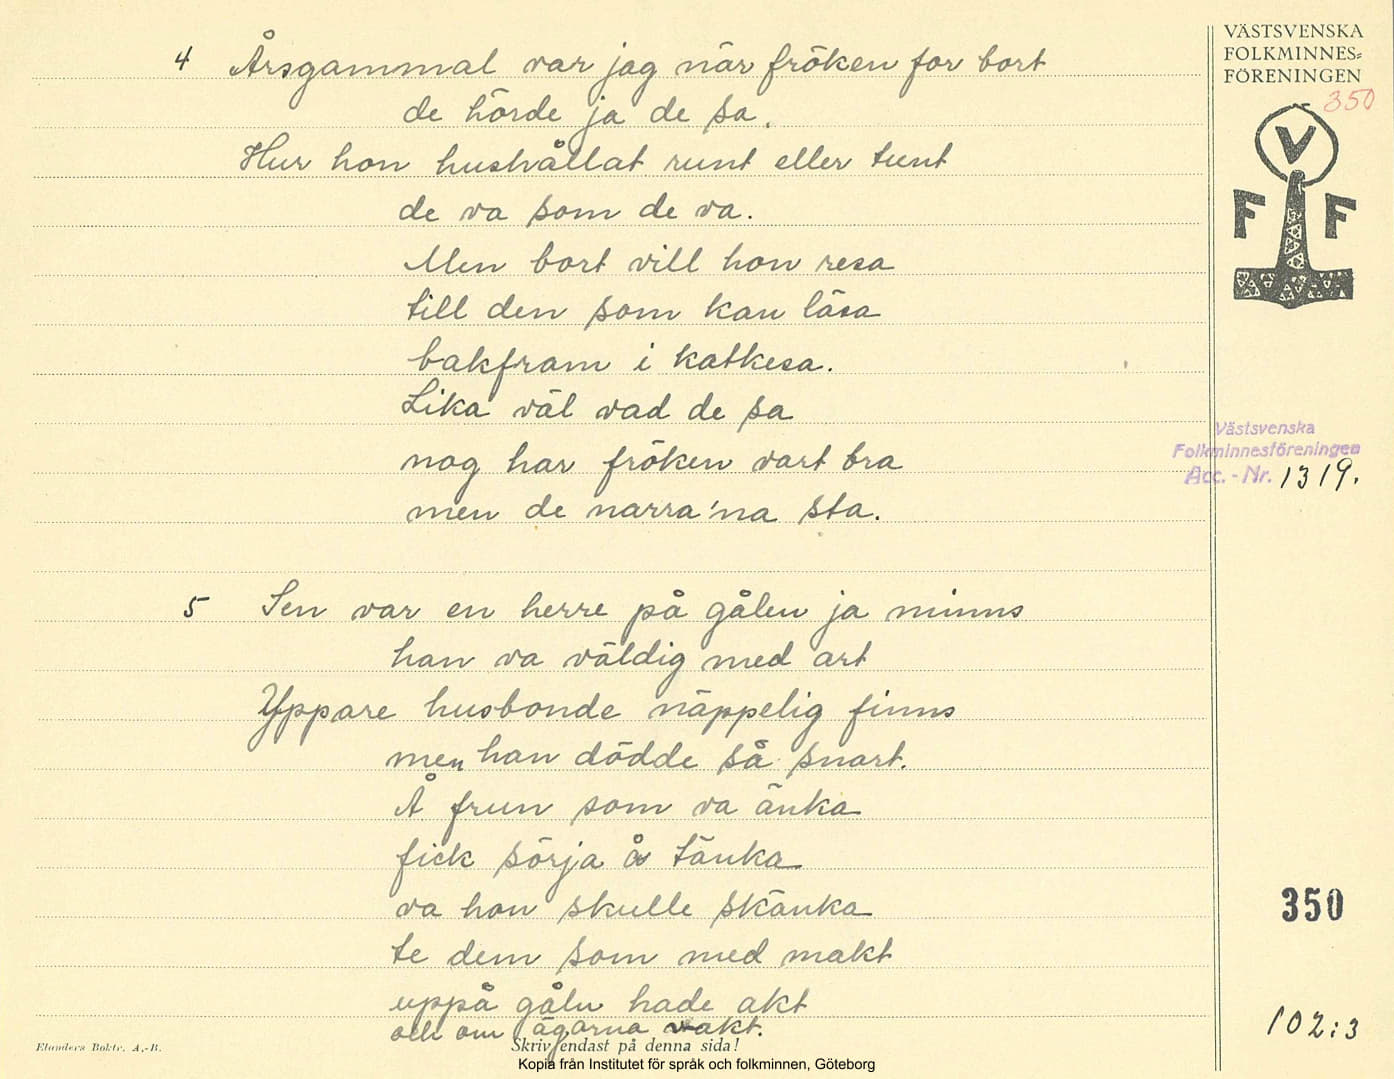 VÄSTSVENSKA
FOLKMINNES=
FÖRENINGEN
350
V
F F
4 Årsgammal var jag när fröken for bort
de hörde ja de sa.
Hur hon hushållat runt eller tunt
de va som de va.
Men bort vill hon resa
till den som kan läsa
bakfram i katkesa.
Lika väl vad de sa
nog har fröken vart bra
men de narra'na sta.
Västsvenska
Folkminnesföreningen
Acc.-Nr. 1319.
5 Sen var en herre på gålen ja minns
han va väldig med art
Yppare husbonde näppelig finns
men han dödde så snart.
Å frun som va änka
fick sörja å tänka
va hon skulle skänka
te dem som med makt
uppå gåln hade akt
och om ägarna vakt.
350
102:3
Elanders Boktr. A.-B.
Skriv endast på denna sida!
Kopia från Institutet för språk och folkminnen, Göteborg